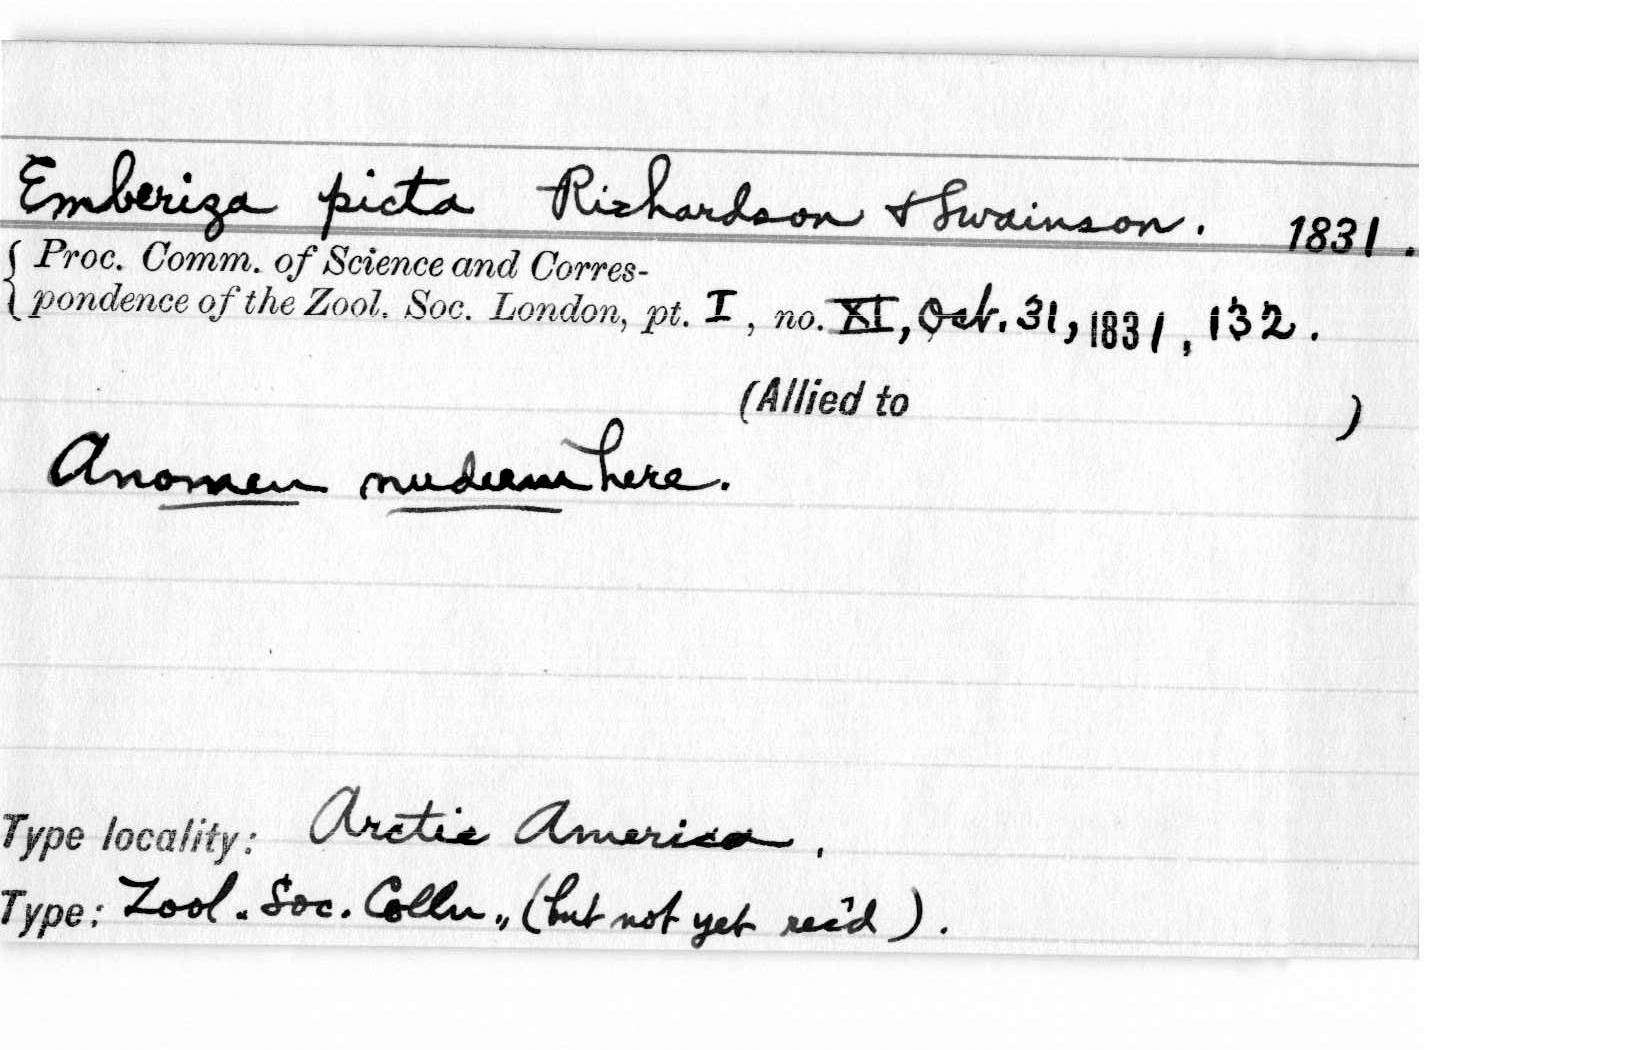 Emberiza picta Richardson & Swainson. 1831.
{ Proc. Comm. of Science and Corres-
pondence of the Zool. Soc. London, pt. I, no. XI, Oct. 31, 1831, 132.
(Allied to )
A nomen nudum here.
Type locality: Arctic America.
Type: Zool. Soc. Colln., (but not yet rec'd).